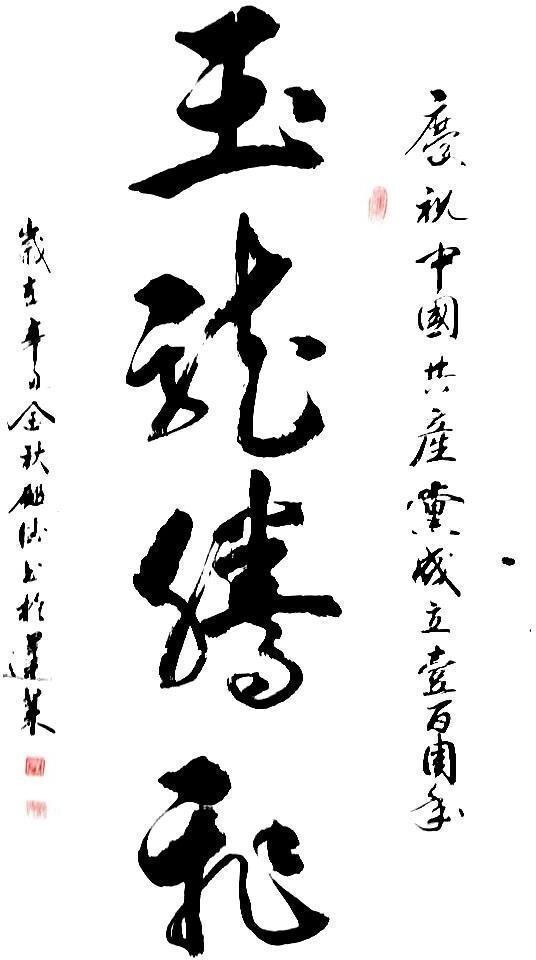 慶祝中國共産黨成立壹百周年
玉龍騰飛
歲在辛丑金秋书於蓬萊